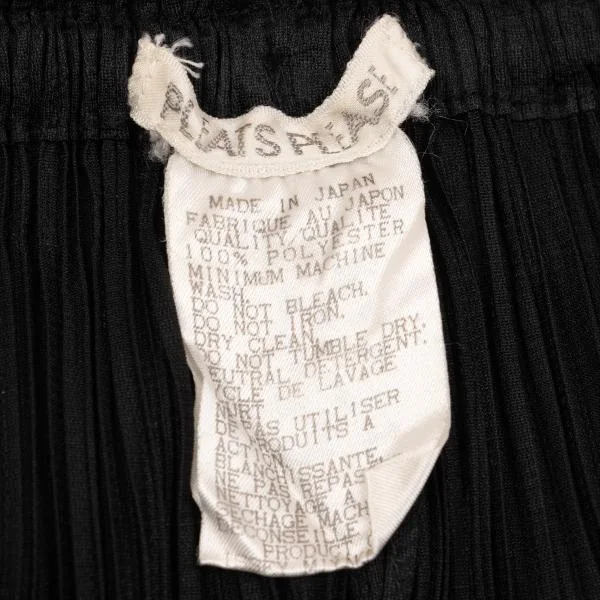 PLEATS PLEASE
MADE IN JAPAN
FABRIQUE AU JAPON
QUALITY/QUALITE
100% POLYESTER
MINIMUM MACHINE
WASH.
DO NOT BLEACH.
DO NOT IRON.
DRY CLEAN.
DO NOT TUMBLE DRY.
NEUTRAL DETERGENT.
CLE DE LAVAGE
DE PAS UTILISER
PRODUITS A
BLANCHISSANTE.
NE PAS REPAS
NETTOYAGE A
SECHAGE MACH
DECONSEILLE
PRODUCT